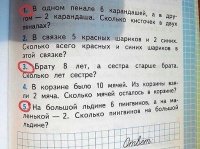 1. В одном пенале 6 карандашей, а в дру-
гом — 2 карандаша. Сколько кисточек в двух
пеналах?
2. В связке 5 красных шариков и 2 синих.
Сколько всего красных и синих шариков в
этой связке?
3. Брату 8 лет, а сестра старше брата.
Сколько лет сестре?
4. В корзине было 10 мячей. Из корзины взя-
ли 2 мяча. Сколько мячей осталось в корзине?
5. На большой льдине 6 пингвинов, а на ма-
ленькой — 2. Сколько пингвинов на большой
льдине?
Ответ